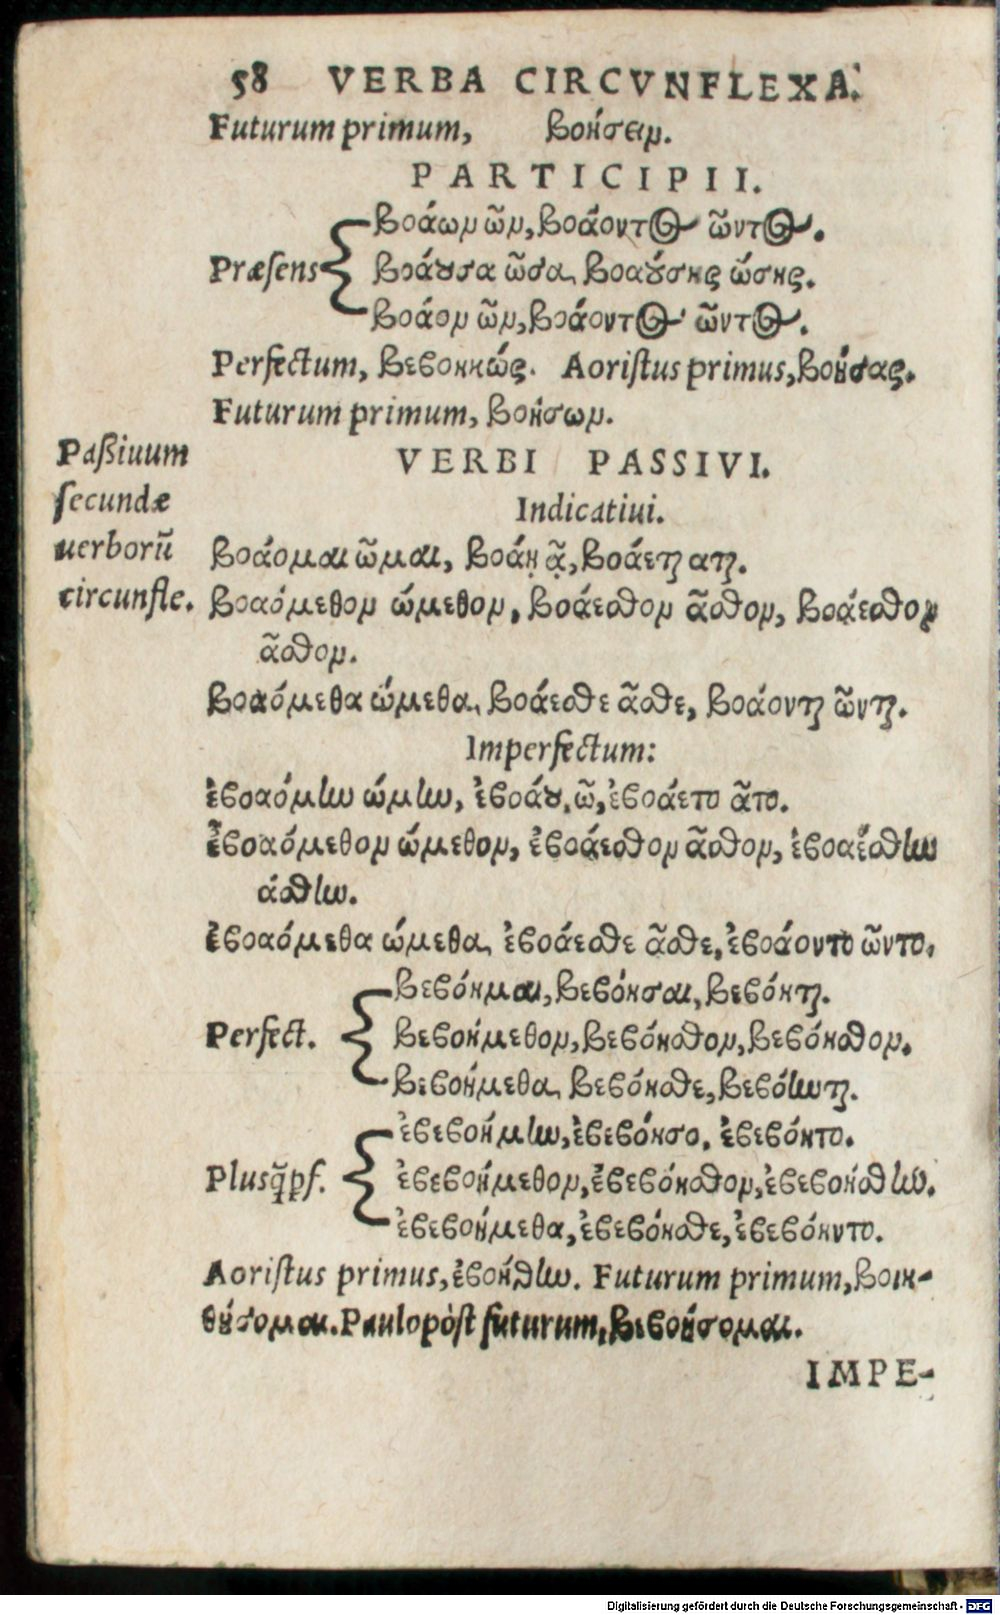 58 VERBA CIRCVNFLEXA.
Futurum primum, βοήσειν.
PARTICIPII.
βοάων ῶν, βοάοντος ῶντος.
Præsens βοάουσα ῶσα, βοαούσης ώσης.
βοάον ῶν, βοάοντος ῶντος.
Perfectum, βεβοηκώς. Aoristus primus, βοήσας.
Futurum primum, βοήσων.
Paßiuum
secundæ
uerborũ
circunfle.
VERBI PASSIVI.
Indicatiui.
βοάομαι ῶμαι, βοάῃ ᾷ, βοάεται αται.
βοαόμεθον ώμεθον, βοάεσθον ᾶσθον, βοάεσθον
ᾶσθον.
βοαόμεθα ώμεθα, βοάεσθε ᾶσθε, βοάονται ῶνται.
Imperfectum:
ἐβοαόμην ώμην, ἐβοάου, ῶ, ἐβοάετο ᾶτο.
ἐβοαόμεθον ώμεθον, ἐβοάεσθον ᾶσθον, ἐβοαέσθην
άσθην.
ἐβοαόμεθα ώμεθα, ἐβοάεσθε ᾶσθε, ἐβοάοντο ῶντο.
βεβόημαι, βεβόησαι, βεβόηται.
Perfect. βεβοήμεθον, βεβόησθον, βεβόησθον.
βεβοήμεθα, βεβόησθε, βεβόηνται.
ἐβεβοήμην, ἐβεβόησο, ἐβεβόητο.
Plusq̃pf. ἐβεβοήμεθον, ἐβεβόησθον, ἐβεβοήσθην.
ἐβεβοήμεθα, ἐβεβόησθε, ἐβεβόηντο.
Aoristus primus, ἐβοήθην. Futurum primum, βοιη-
θήσομαι. Paulopòst futurum, βεβοήσομαι.
IMPE-
Digitalisierung gefördert durch die Deutsche Forschungsgemeinschaft - DFG